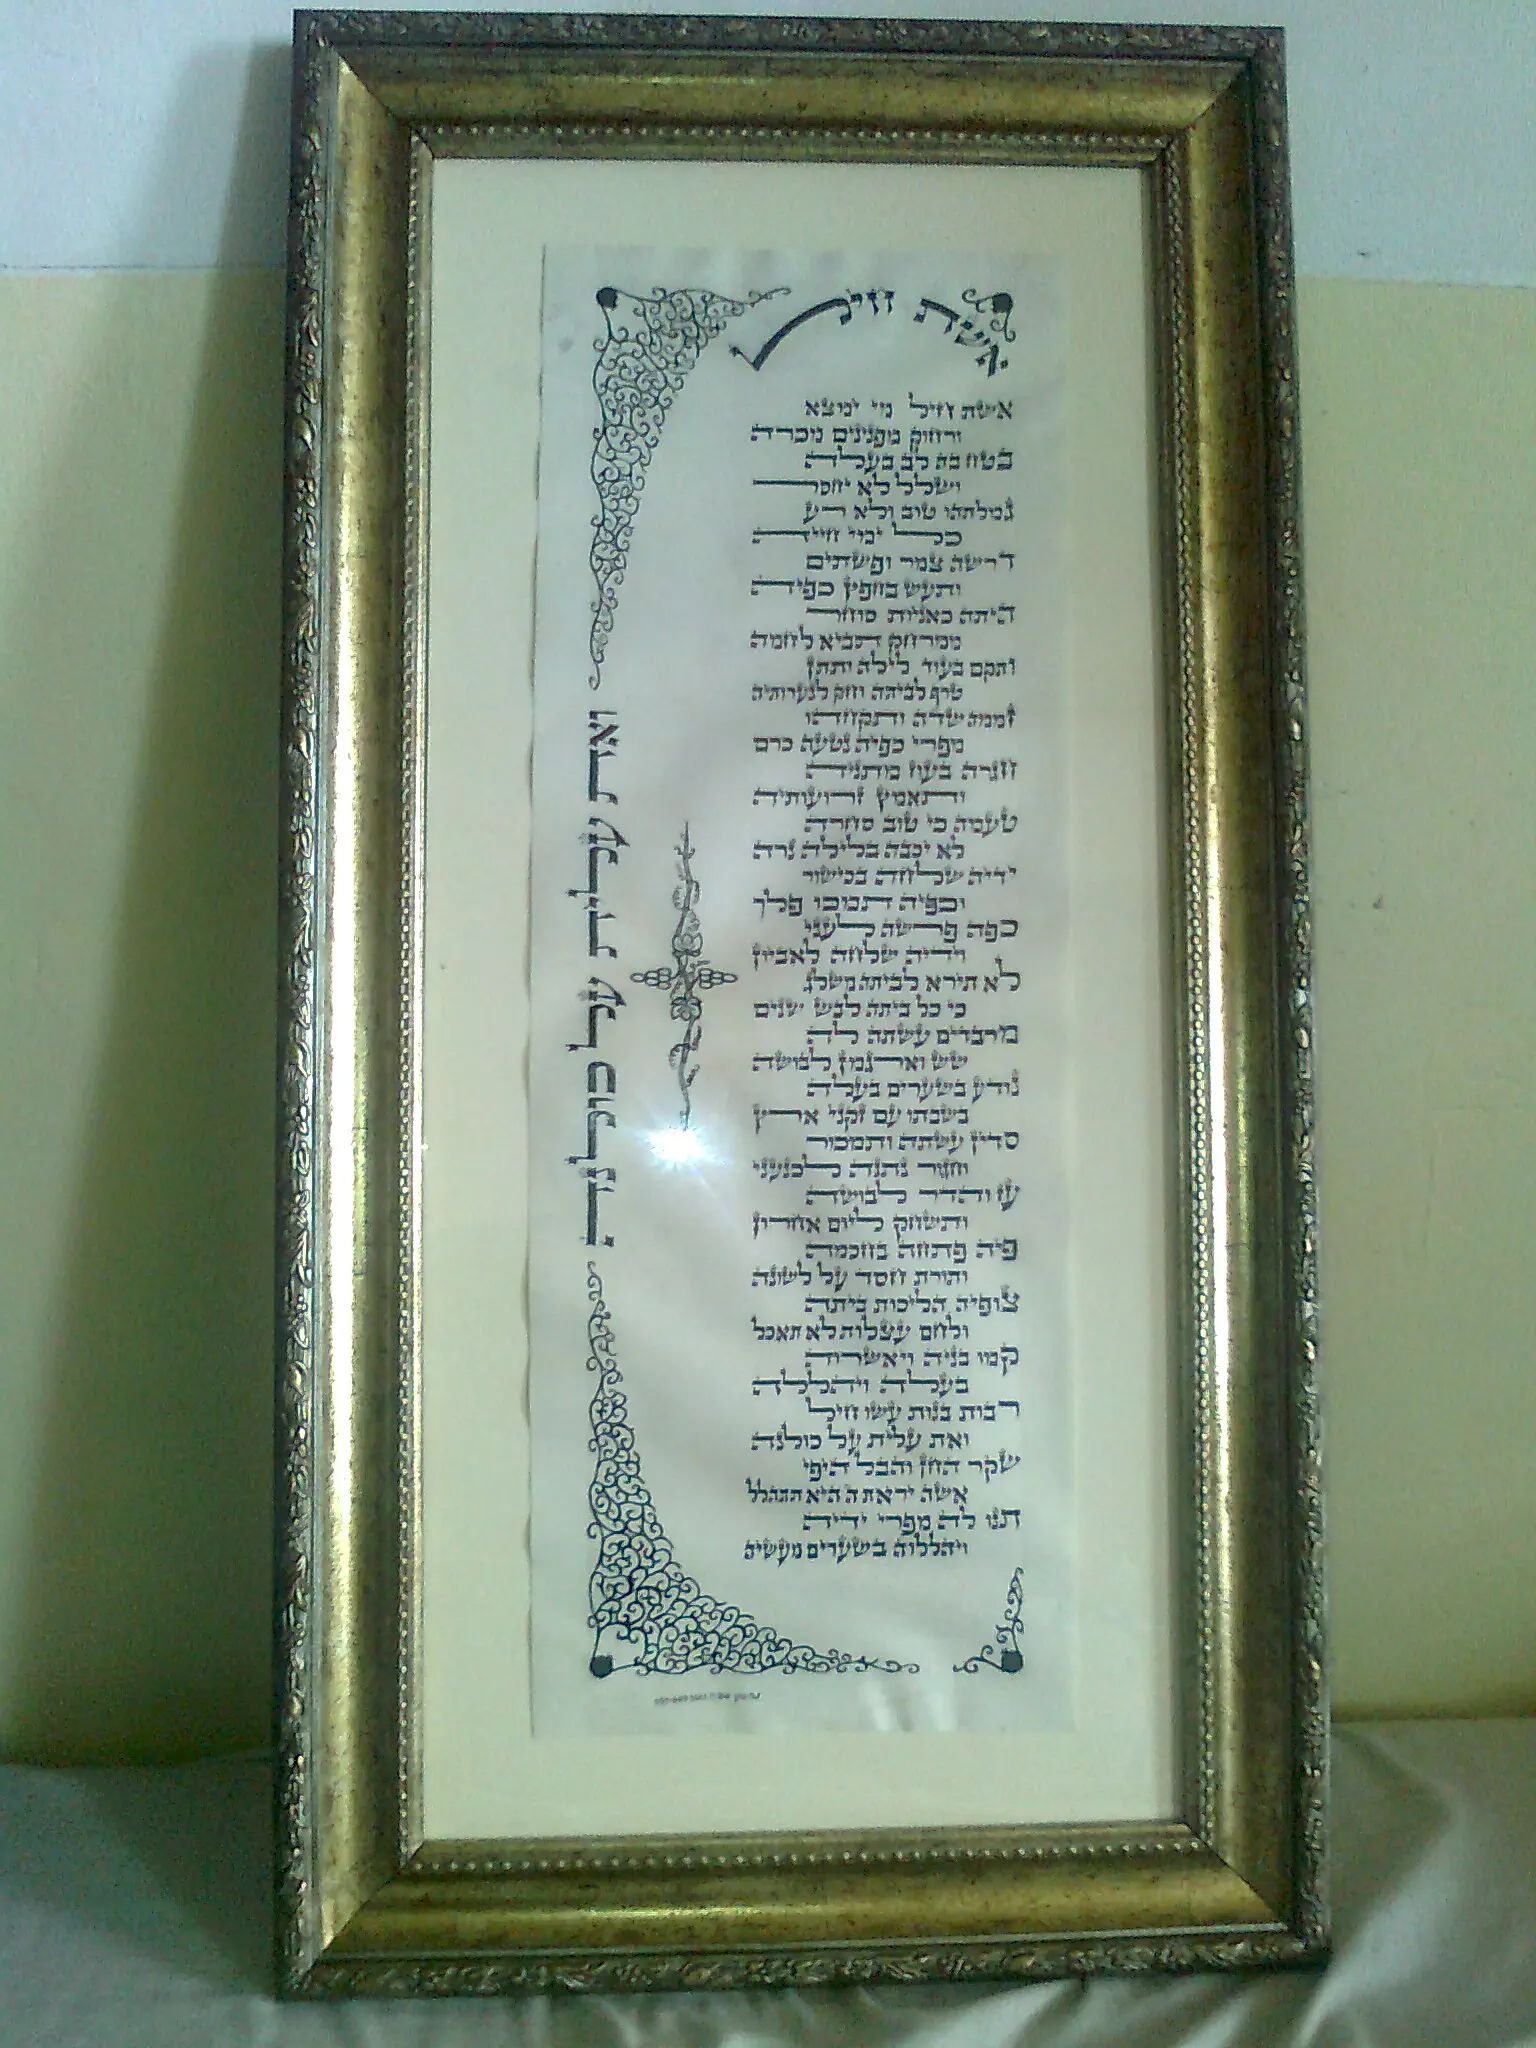 אשת חיל
אשת חיל מי ימצא
ורחוק מפנינים מכרה
בטח בה לב בעלה
ושלל לא יחסר
גמלתהו טוב ולא רע
כל ימי חייה
דרשה צמר ופשתים
ותעש בחפץ כפיה
היתה כאניות סוחר
ממרחק תביא לחמה
ותקם בעוד לילה ותתן
טרף לביתה וחק לנערותיה
זממה שדה ותקחהו
מפרי כפיה נטעה כרם
חגרה בעוז מתניה
ותאמץ זרועותיה
טעמה כי טוב סחרה
לא יכבה בלילה נרה
ידיה שלחה בכישור
וכפיה תמכו פלך
כפה פרשה לעני
וידיה שלחה לאביון
לא תירא לביתה משלג
כי כל ביתה לבש שנים
מרבדים עשתה לה
שש וארגמן לבושה
נודע בשערים בעלה
בשבתו עם זקני ארץ
סדין עשתה ותמכור
וחגור נתנה לכנעני
עז והדר לבושה
ותשחק ליום אחרון
פיה פתחה בחכמה
ותורת חסד על לשונה
צופיה הליכות ביתה
ולחם עצלות לא תאכל
קמו בניה ויאשרוה
בעלה ויהללה
רבות בנות עשו חיל
ואת עלית על כולנה
שקר החן והבל היפי
אשה יראת ה היא תתהלל
תנו לה מפרי ידיה
ויהללוה בשערים מעשיה
ואת עלית על כולנה